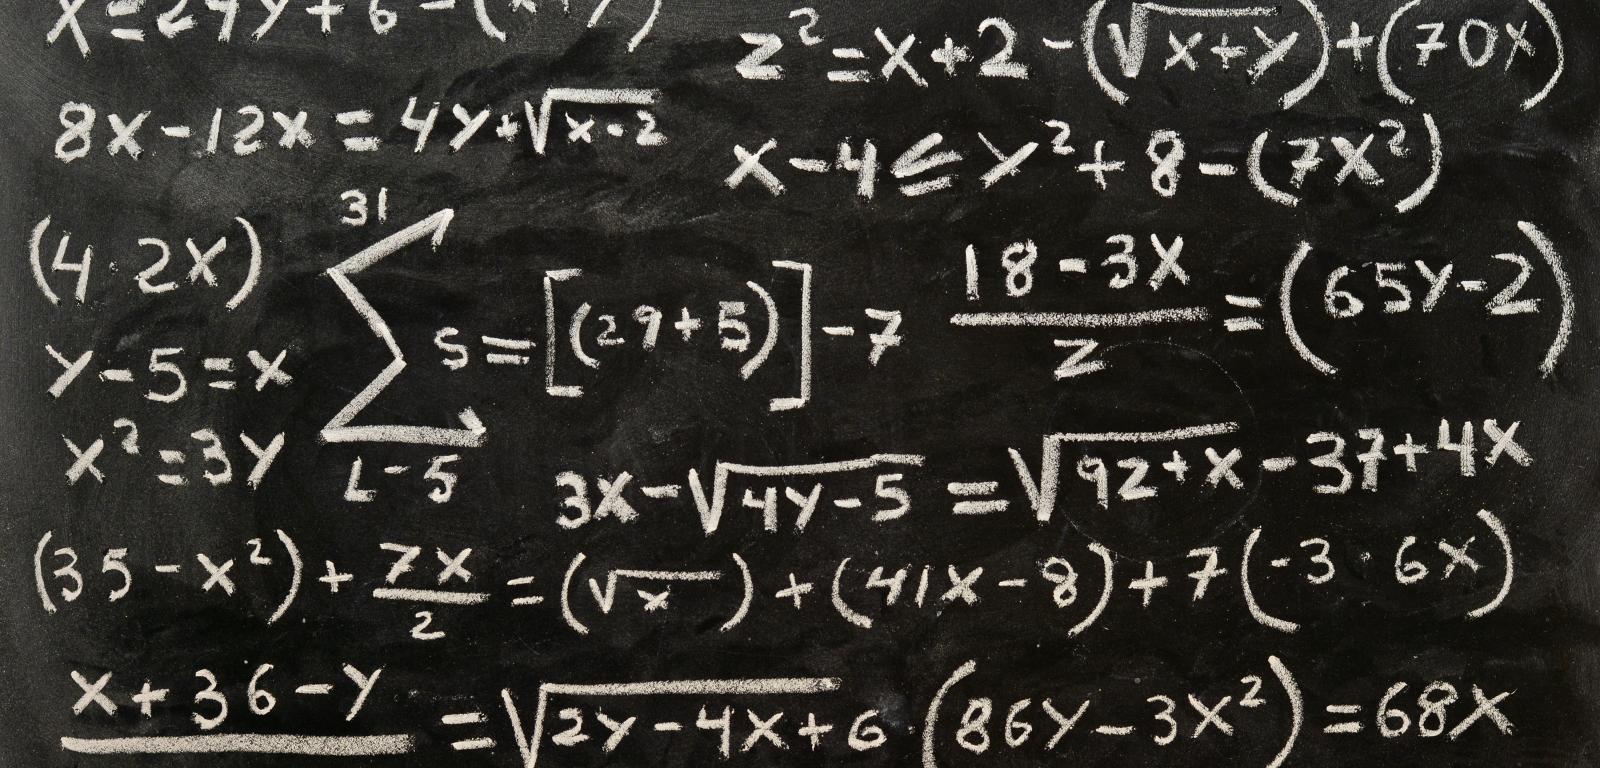 x=24y+6-(x+y)
z²=x+2-(√x+y)+(70x)
8x-12x=4y+√x-2
x-4≤y²+8-(7x²)
(4·2x)
31
Σ s=[(29+5)]-7
18-3x
z
=(65y-2)
y-5=x
x²=3y
L-5
3x-√4y-5=√92+x-37+4x
(35-x²)+7x/2=(√x)+(41x-8)+7(-3·6x)
x+36-y
=√2y-4x+6·(86y-3x²)=68x